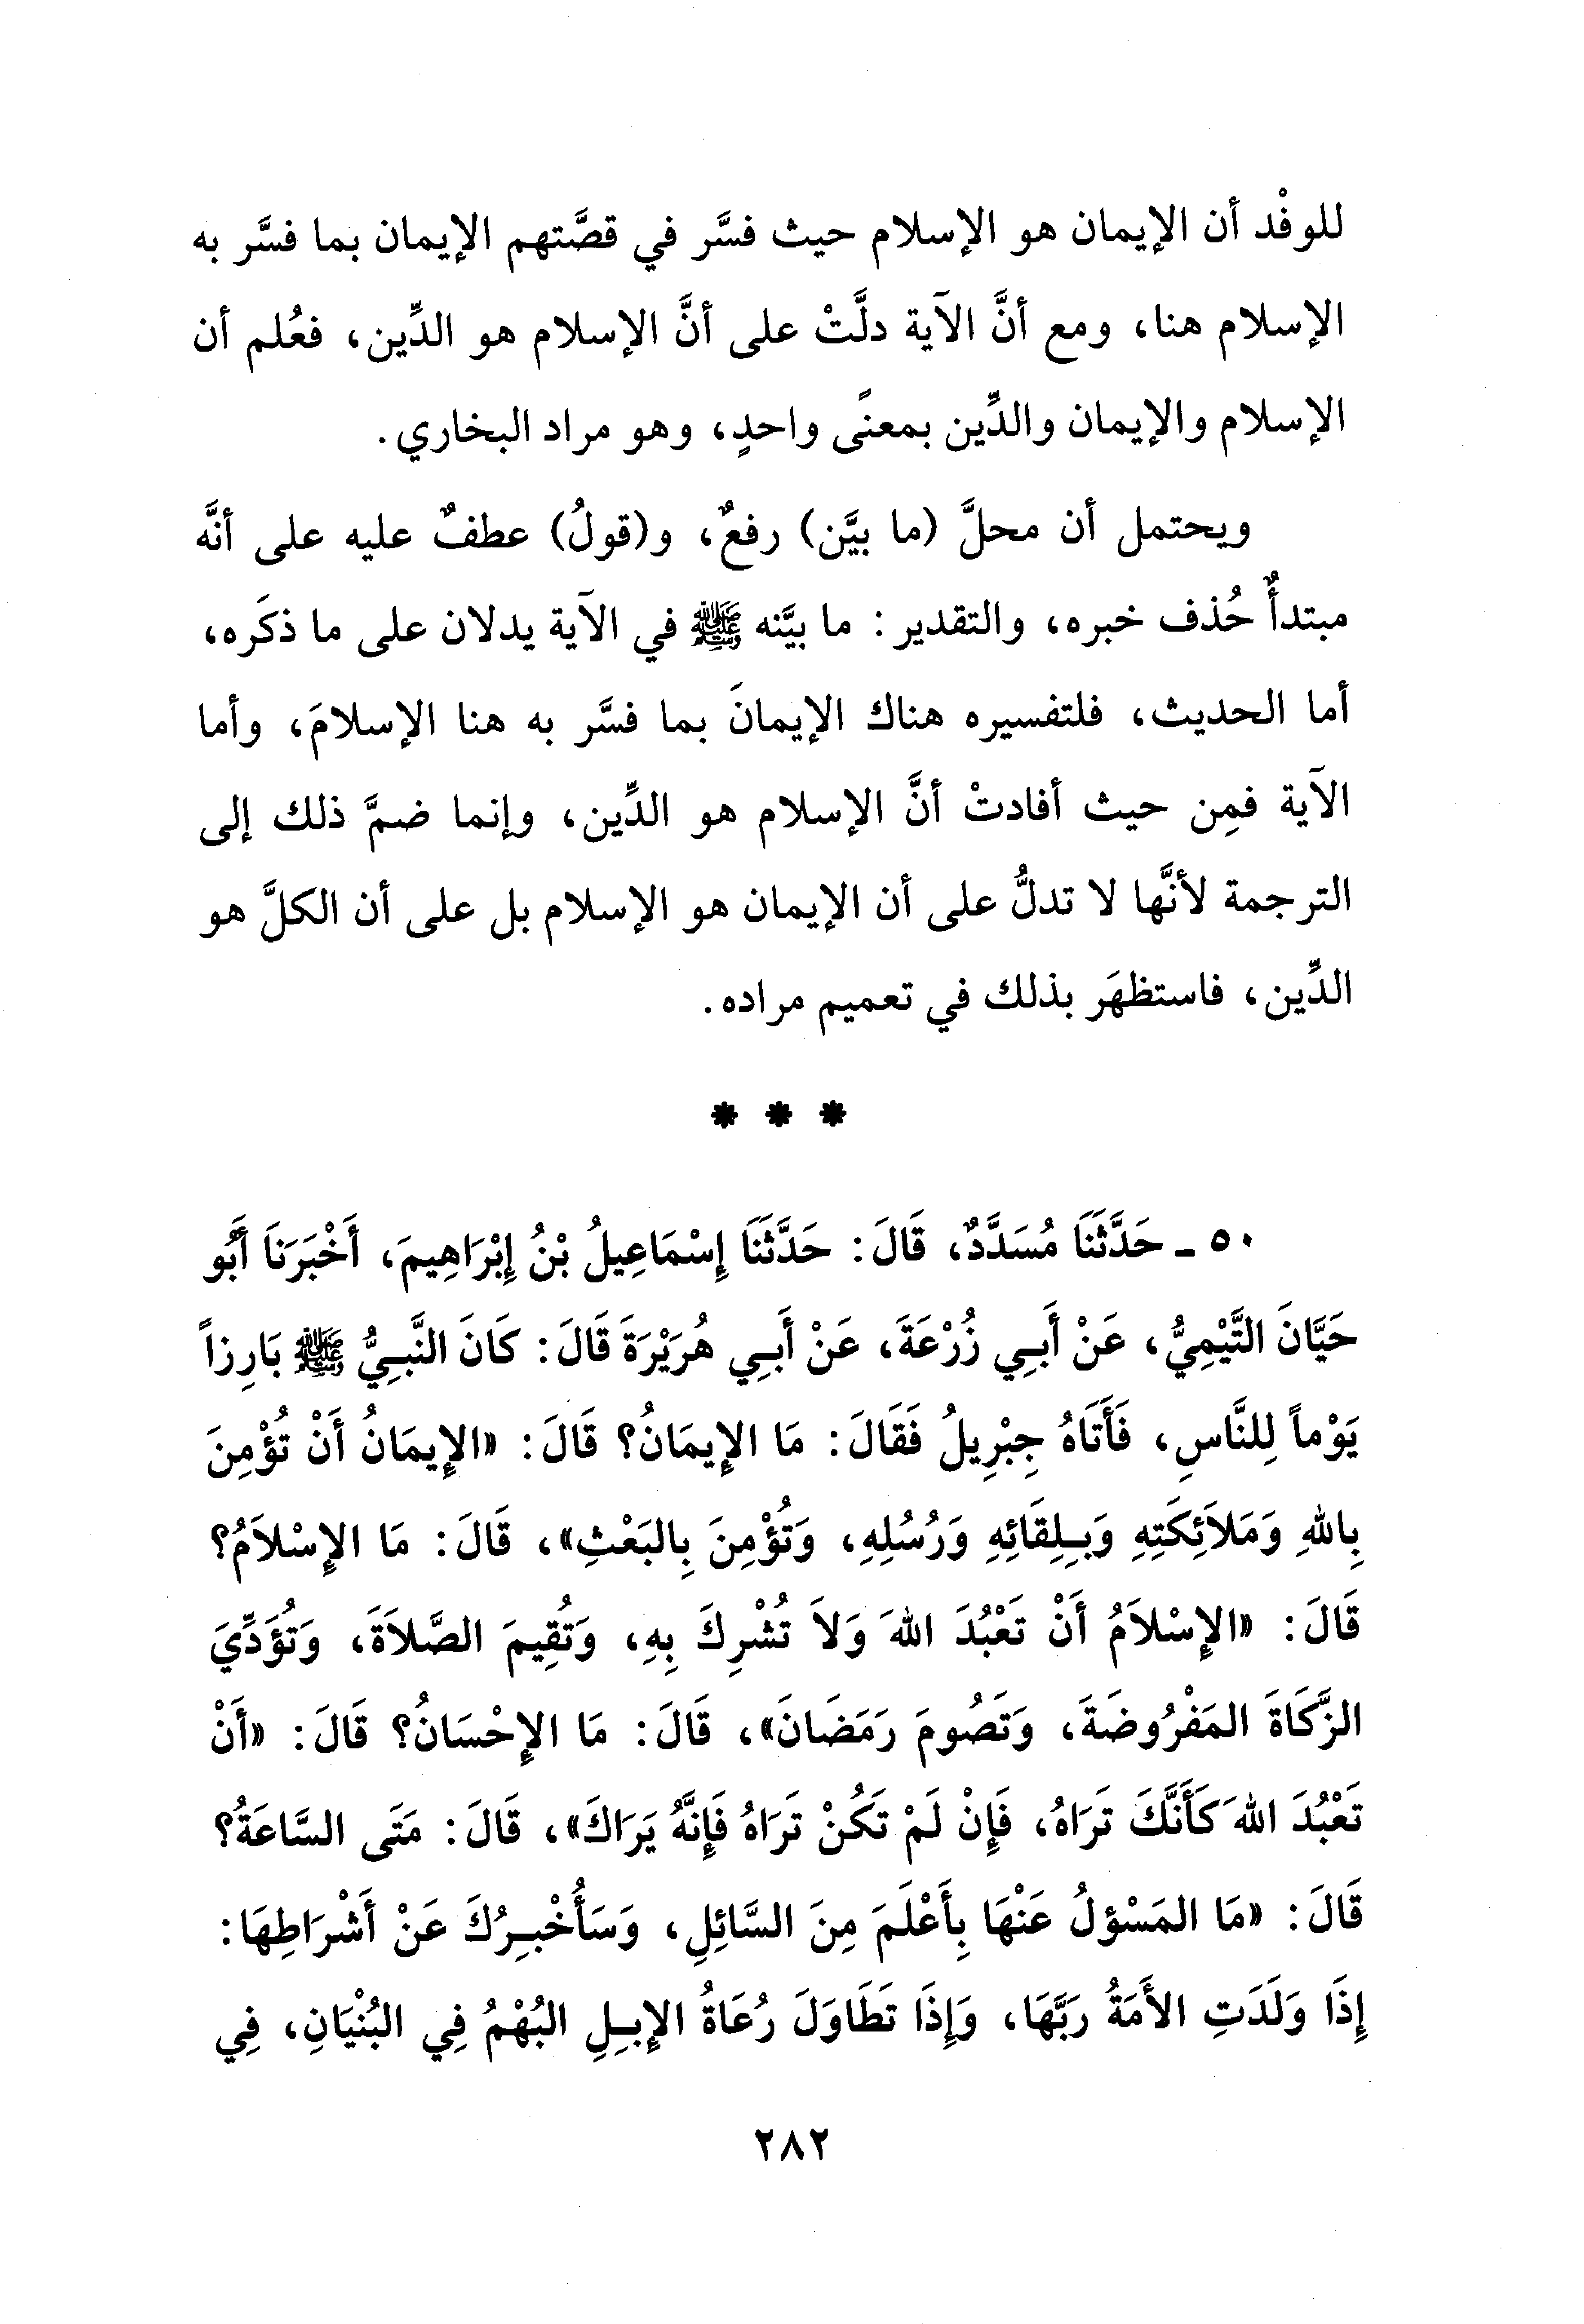 للوفْد أن الإيمان هو الإسلام حيث فسَّر في قصَّتهم الإيمان بما فسَّر به
الإسلام هنا، ومع أنَّ الآية دلَّتْ على أنَّ الإسلام هو الدِّين، فعُلم أن
الإسلام والإيمان والدِّين بمعنًى واحدٍ، وهو مراد البخاري.
ويحتمل أن محلَّ (ما بيَّن) رفعٌ، و(قولُ) عطفٌ عليه على أنَّه
مبتدأٌ حُذف خبره، والتقدير: ما بيَّنه ﷺ في الآية يدلان على ما ذكَره،
أما الحديث، فلتفسيره هناك الإيمانَ بما فسَّر به هنا الإسلامَ، وأما
الآية فمِن حيث أفادتْ أنَّ الإسلام هو الدِّين، وإنما ضمَّ ذلك إلى
الترجمة لأنَّها لا تدلُّ على أن الإيمان هو الإسلام بل على أن الكلَّ هو
الدِّين، فاستظهَر بذلك في تعميم مراده.
* * *
٥٠ ـ حَدَّثَنَا مُسَدَّدٌ، قَالَ: حَدَّثَنَا إِسْمَاعِيلُ بْنُ إِبْرَاهِيمَ، أَخْبَرَنَا أَبُو
حَيَّانَ التَّيْمِيُّ، عَنْ أَبِي زُرْعَةَ، عَنْ أَبِي هُرَيْرَةَ قَالَ: كَانَ النَّبِيُّ ﷺ بَارِزاً
يَوْماً لِلنَّاسِ، فَأَتَاهُ جِبْرِيلُ فَقَالَ: مَا الإِيمَانُ؟ قَالَ: «الإِيمَانُ أَنْ تُؤْمِنَ
بِاللهِ وَمَلاَئِكَتِهِ وَبِلِقَائِهِ وَرُسُلِهِ، وَتُؤْمِنَ بِالبَعْثِ»، قَالَ: مَا الإِسْلاَمُ؟
قَالَ: «الإِسْلاَمُ أَنْ تَعْبُدَ اللهَ وَلاَ تُشْرِكَ بِهِ، وَتُقِيمَ الصَّلاَةَ، وَتُؤَدِّيَ
الزَّكَاةَ المَفْرُوضَةَ، وَتَصُومَ رَمَضَانَ»، قَالَ: مَا الإِحْسَانُ؟ قَالَ: «أَنْ
تَعْبُدَ اللهَ كَأَنَّكَ تَرَاهُ، فَإِنْ لَمْ تَكُنْ تَرَاهُ فَإِنَّهُ يَرَاكَ»، قَالَ: مَتَى السَّاعَةُ؟
قَالَ: «مَا المَسْؤلُ عَنْهَا بِأَعْلَمَ مِنَ السَّائِلِ، وَسَأُخْبِرُكَ عَنْ أَشْرَاطِهَا:
إِذَا وَلَدَتِ الأَمَةُ رَبَّهَا، وَإِذَا تَطَاوَلَ رُعَاةُ الإِبِلِ البُهْمُ فِي البُنْيَانِ، فِي
٢٨٢